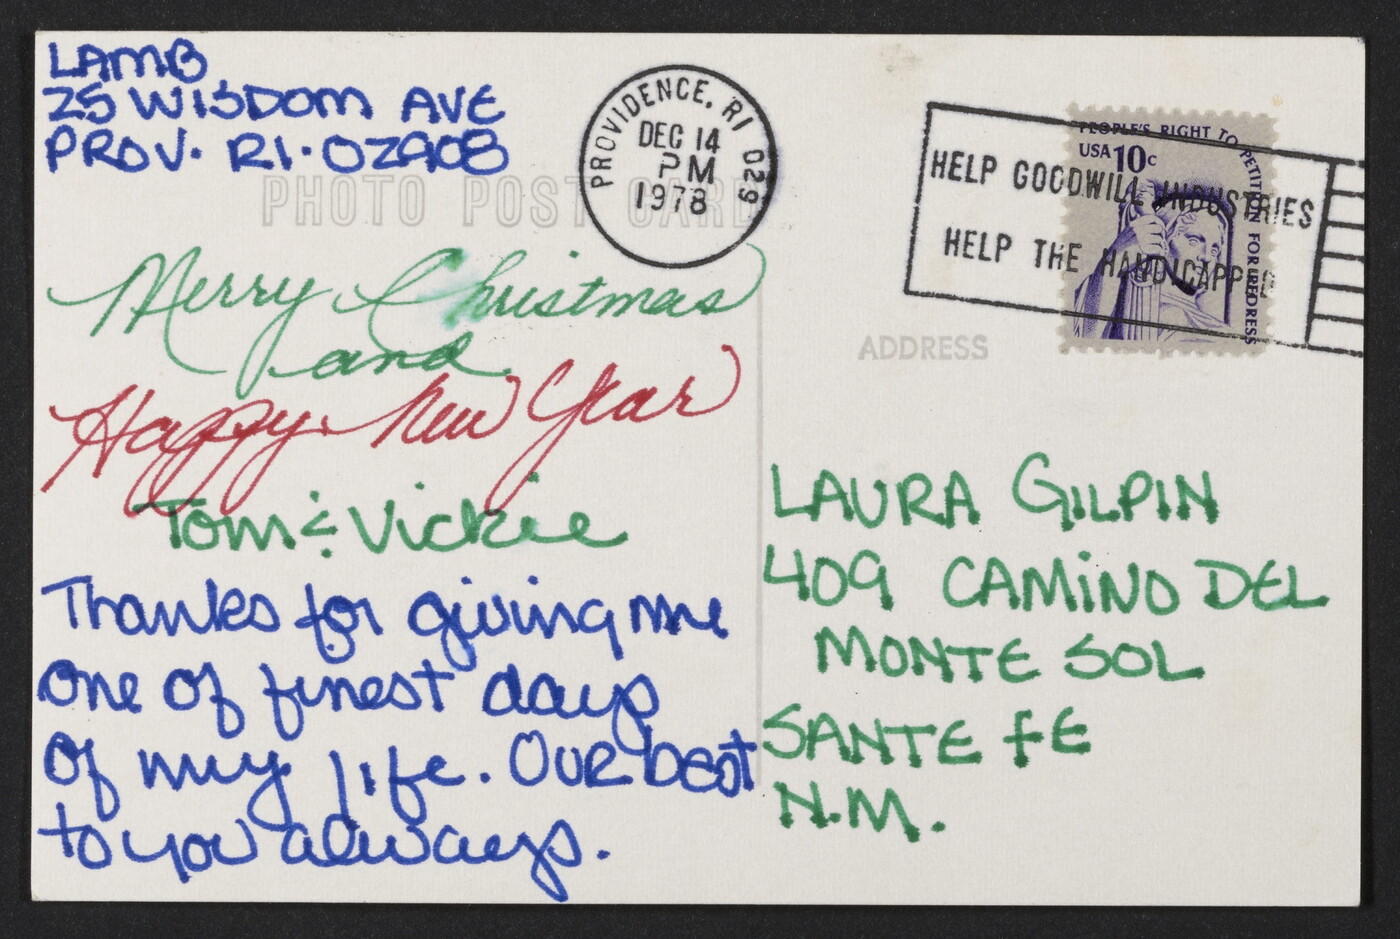 LAMB
25 WISDOM AVE
PROV. RI. 02908
PHOTO POST CARD
PROVIDENCE, RI 029
DEC 14
PM
1978
HELP GOODWILL INDUSTRIES
HELP THE HANDICAPPED
PEOPLE'S RIGHT TO PETITION FOR REDRESS
USA 10c
Merry Christmas
and
Happy New Year
Tom & Vickie
Thanks for giving me
one of finest days
of my life. Our best
to you always.
ADDRESS
LAURA GILPIN
409 CAMINO DEL
MONTE SOL
SANTE FE
N.M.